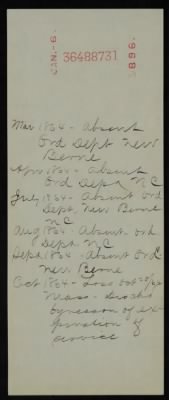 JAN.-6.
36488731
1896.
Mar 1864 - Absent
Ord Dept New
Berne
Apr 1864 - absent
Ord Dept, NC
July 1864 - Absent Ord
Dept, New Berne
NC
Aug 1864 - Absent Ord.
Dept. NC
Sept 1864 - Absent Ord
New Berne
Oct 1864 -
Mass -
by reason of ex-
piration of
service